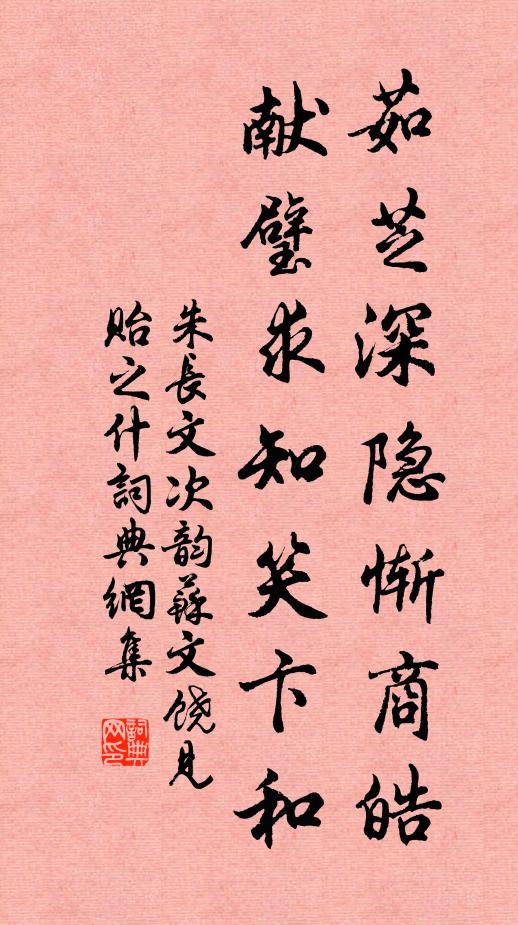 茹芝深隐惭商皓
献璧求知笑卞和
朱長文次韵蘇文饶見
貽之什詞典網集
詞典网印